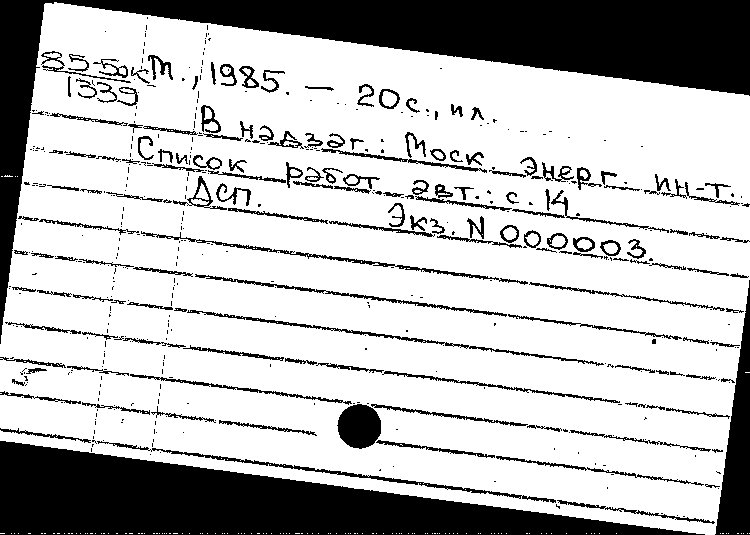 85-50к М., 1985. — 20 с., ил.
1339
В надзаг.: Моск. энерг. ин-т.
Список работ авт.: с. 14.
ДСП. Экз. N 000003.